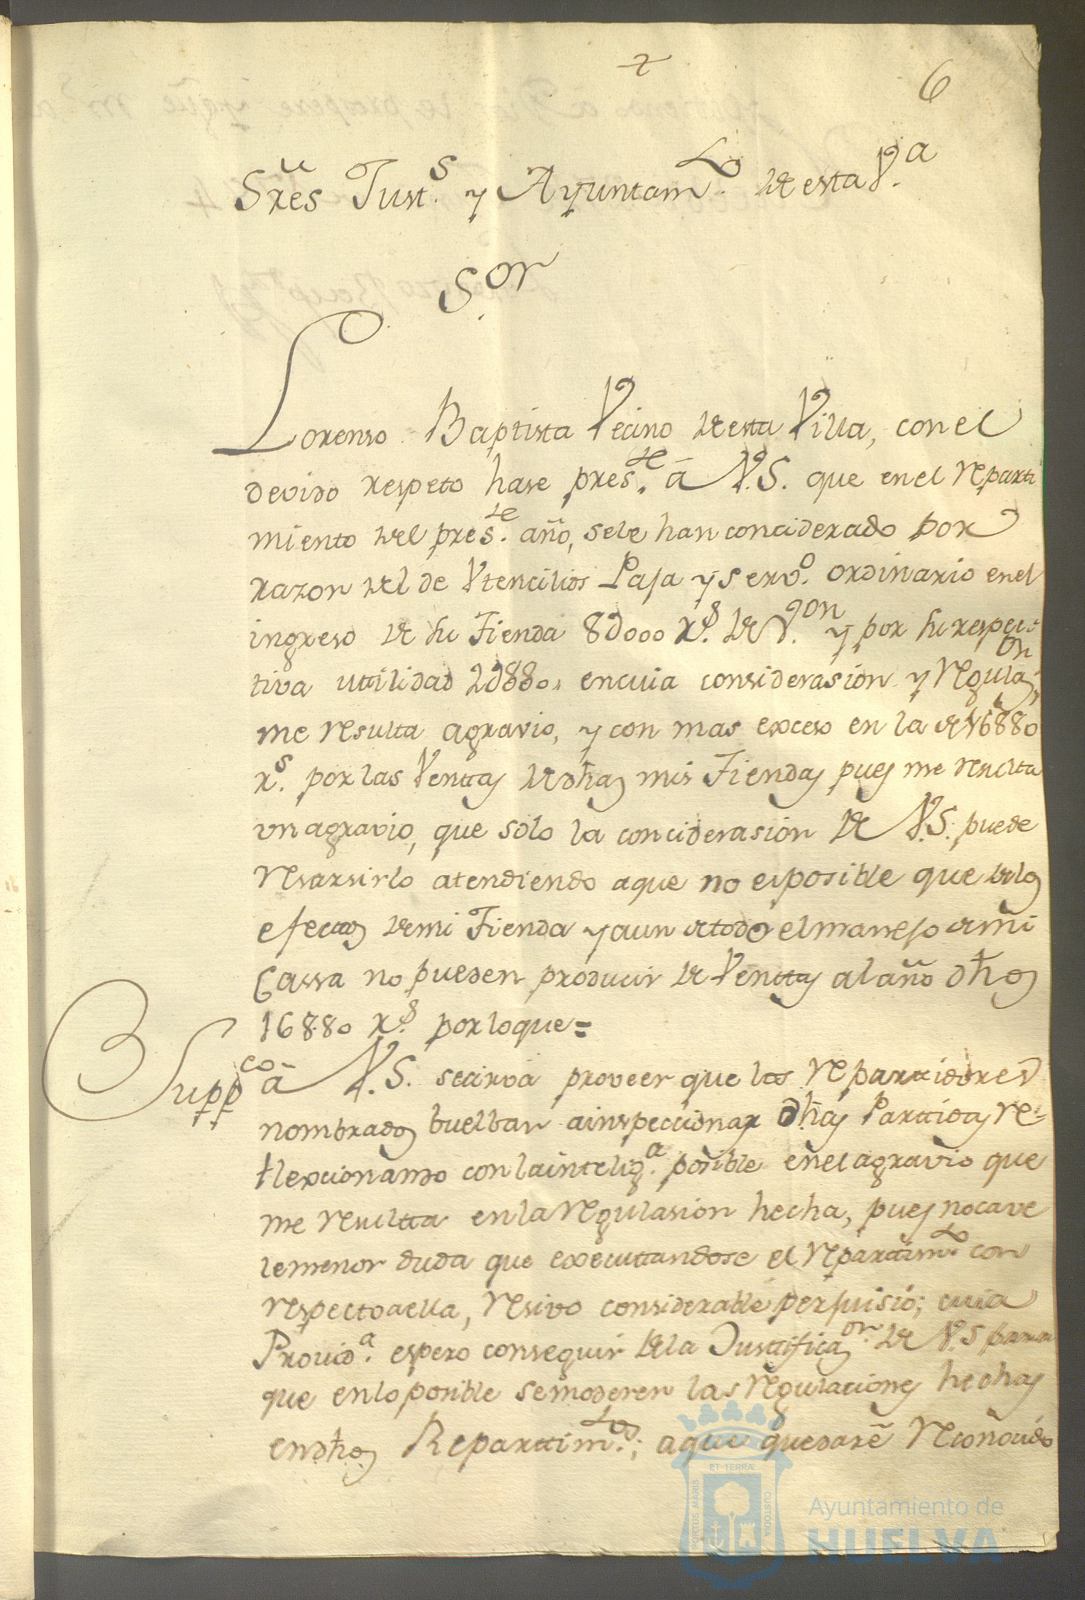 6
Sres Just.s y Ayuntam.to de esta V.a
S.or
Lorenso Baptista Vecino de esta Villa, con el
devido respeto hase pres.te â V.S. que en el reparti
miento del pres.te año, sele han conciderado por
razon del de Vtencilios Paja y Serv.o ordinario en el
ingreso de su Tienda 8D000 r.s de V.on y por su respec-
tiva utilidad 2D880, en cuia considerasion y Regulaz.on
me resulta agravio, y con mas exceso en la de 16880
r.s por las Venttas de dhas mis Tiendas pues me resulta
vn agravio, que solo la conciderasion de V.S. puede
resarsirlo atendiendo aque no es posible que de los
efectos de mi Tienda y aun de todo el manejo de mi
Cassa no pueden producir de Venttas al año dhos
16880 r.s por loque=
Supp.co â V.S. se cirva proveer que los repartidores
nombrados buelban ainspeccionar dhas Parttidas re-
flexcionando con la intelig.a posible en el agravio que
me resultta en la regulasion hecha, pues no cave
lemenor duda que executtandose el repartim.to con
respecto aella, resivo considerable perjuisio; cuia
Provid.a espero conseguir de la Justtificaz.on de V.S para
que en lo posible se moderen las regulaciones hechas
en dhos Reparttim.tos; aque quedaré reconocido
ET TERRÆ
PORTUS MARIS
CUSTODIA
Ayuntamiento de
HUELVA